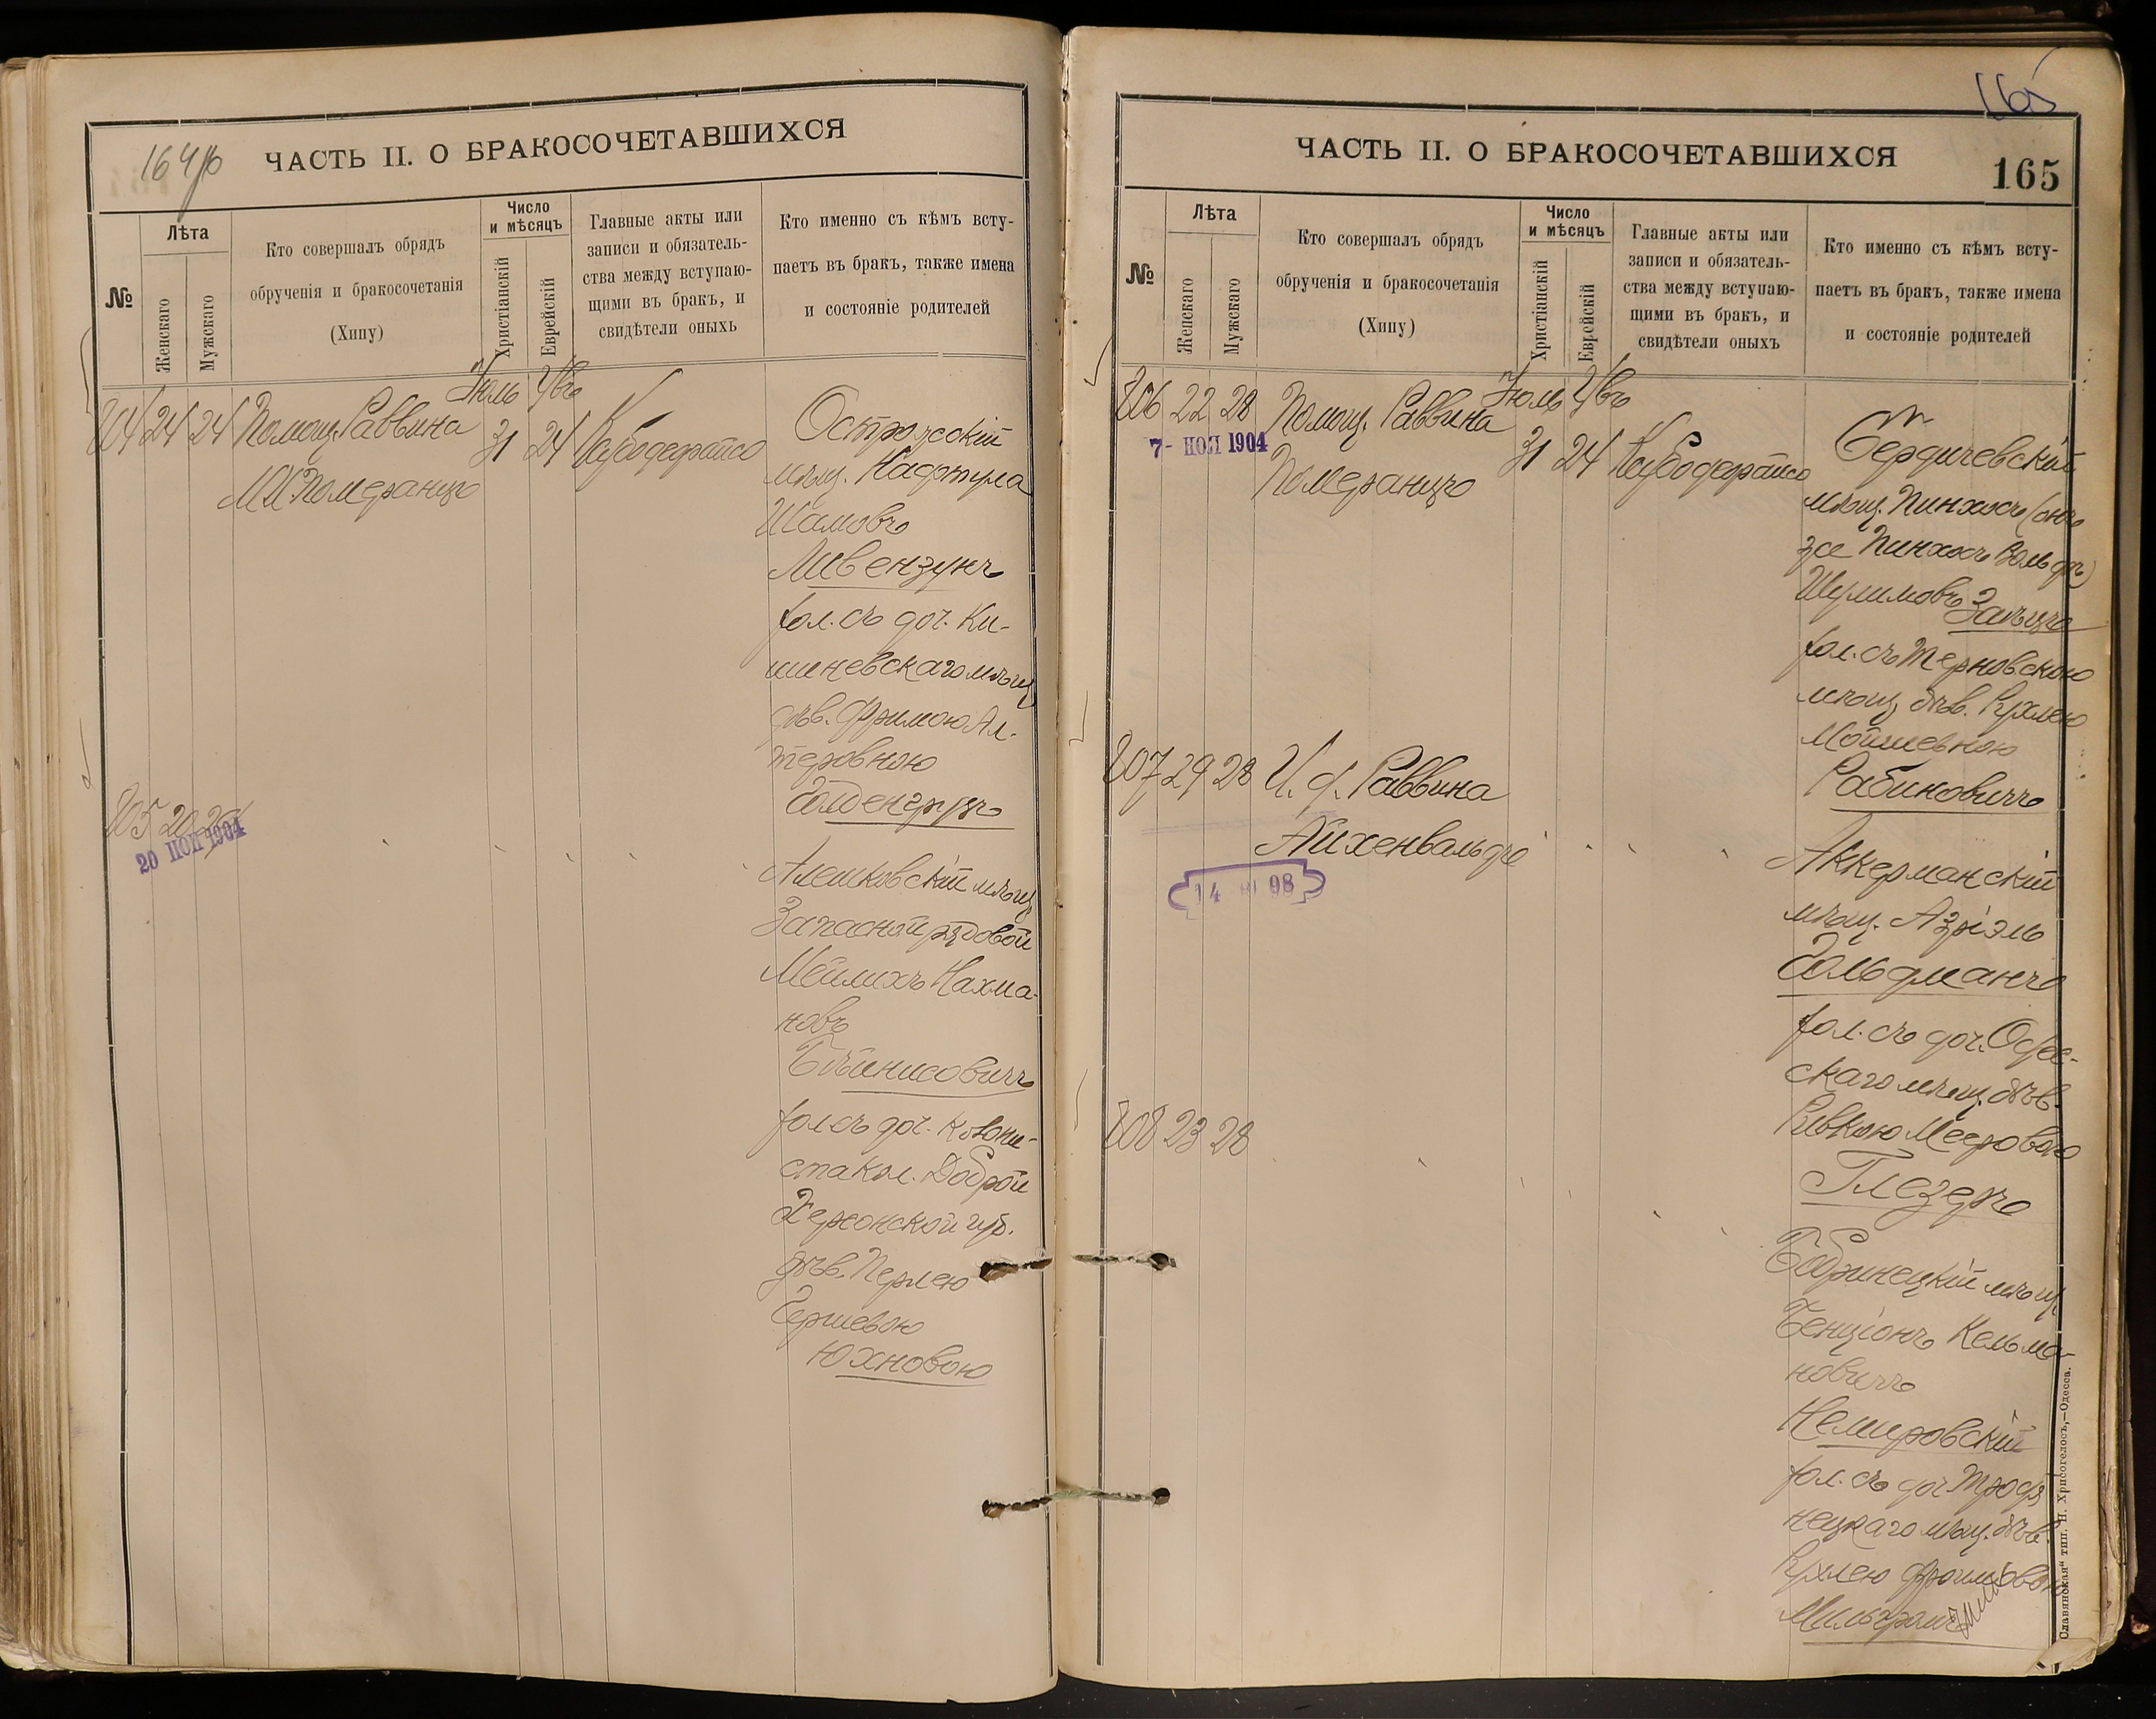 164об
ЧАСТЬ II. О БРАКОСОЧЕТАВШИХСЯ
№
Лѣта
Женскаго
Мужскаго
Кто совершалъ обрядъ
обрученія и бракосочетанія
(Хипу)
Число
и мѣсяцъ
Христіанскій
Еврейскій
Главные акты или
записи и обязатель-
ства между вступаю-
щими въ бракъ, и
свидѣтели оныхъ
Кто именно съ кѣмъ всту-
паетъ въ бракъ, также имена
и состояніе родителей
Іюль
204 24 24 Помощ. Раввина 31 24
М М Померанцъ
Острожскій
мѣщ. Нафтула
Шамовъ
Мивензунъ
хол. съ доч. Ки-
шиневскаго мѣщ
дѣв. Фримою Ал-
теровною
Голденгрузъ
205 20
20 НОЯ 1904
Алешковскій мѣщ
Запасной рядовой
Мейлихъ Нахма-
новъ
Бейнисовичъ
хол. съ доч. колони-
ста кол. Доброй
Херсонской губ.
дѣв. Перлею
Гершевою
Юхновою
165
ЧАСТЬ II. О БРАКОСОЧЕТАВШИХСЯ
165
№
Лѣта
Женскаго
Мужскаго
Кто совершалъ обрядъ
обрученія и бракосочетанія
(Хипу)
Число
и мѣсяцъ
Христіанскій
Еврейскій
Главные акты или
записи и обязатель-
ства между вступаю-
щими въ бракъ, и
свидѣтели оныхъ
Кто именно съ кѣмъ всту-
паетъ въ бракъ, также имена
и состояніе родителей
Іюль
206 22 28 Помощ. Раввина 31 24
7- НОЯ 1904
Померанцъ
Бердичевскій
мѣщ. Пинхосъ (онъ
же Пинхосъ Вольфъ)
Шулимовъ Зайцъ
хол. съ Терновскою
мѣщ. дѣв. Рухлею
Мошиевною
Рабиновичъ
207 29 28 И. д. Раввина
Айхенвальдъ
14 98
Аккерманскій
мѣщ. Азріэль
Гольдманъ
хол. съ доч. Одес-
скаго мѣщ. дѣв.
Ривкою Мееровою
Глезеръ
208 23 28
Бобринецкій мѣщ
Бенціонъ Кельма-
новичъ
Немировскій
хол. съ доч.
нецкаго мѣщ. дѣв.
Рухлею Фроимовою
Мильгромъ
„Славянская“ тип. Н. Хрисогелосъ,—Одесса.